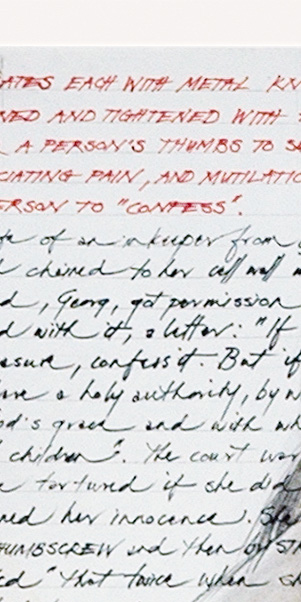 ATES EACH WITH METAL KN
NED AND TIGHTENED WITH
A PERSON'S THUMBS TO S
CIATING PAIN, AND MUTILATIO
ERSON TO "CONFESS".
fe of an inkeeper from
d chained to her cell wall
d, Georg, got permission
d with it, a letter: "If
easure, confess it. But if
fore a holy authority, by w
od's grace and with wh
children". The court wor
e tortured if she did
ned her innocence. She
HUMBSCREW and then on STR
ed "that twice when sh